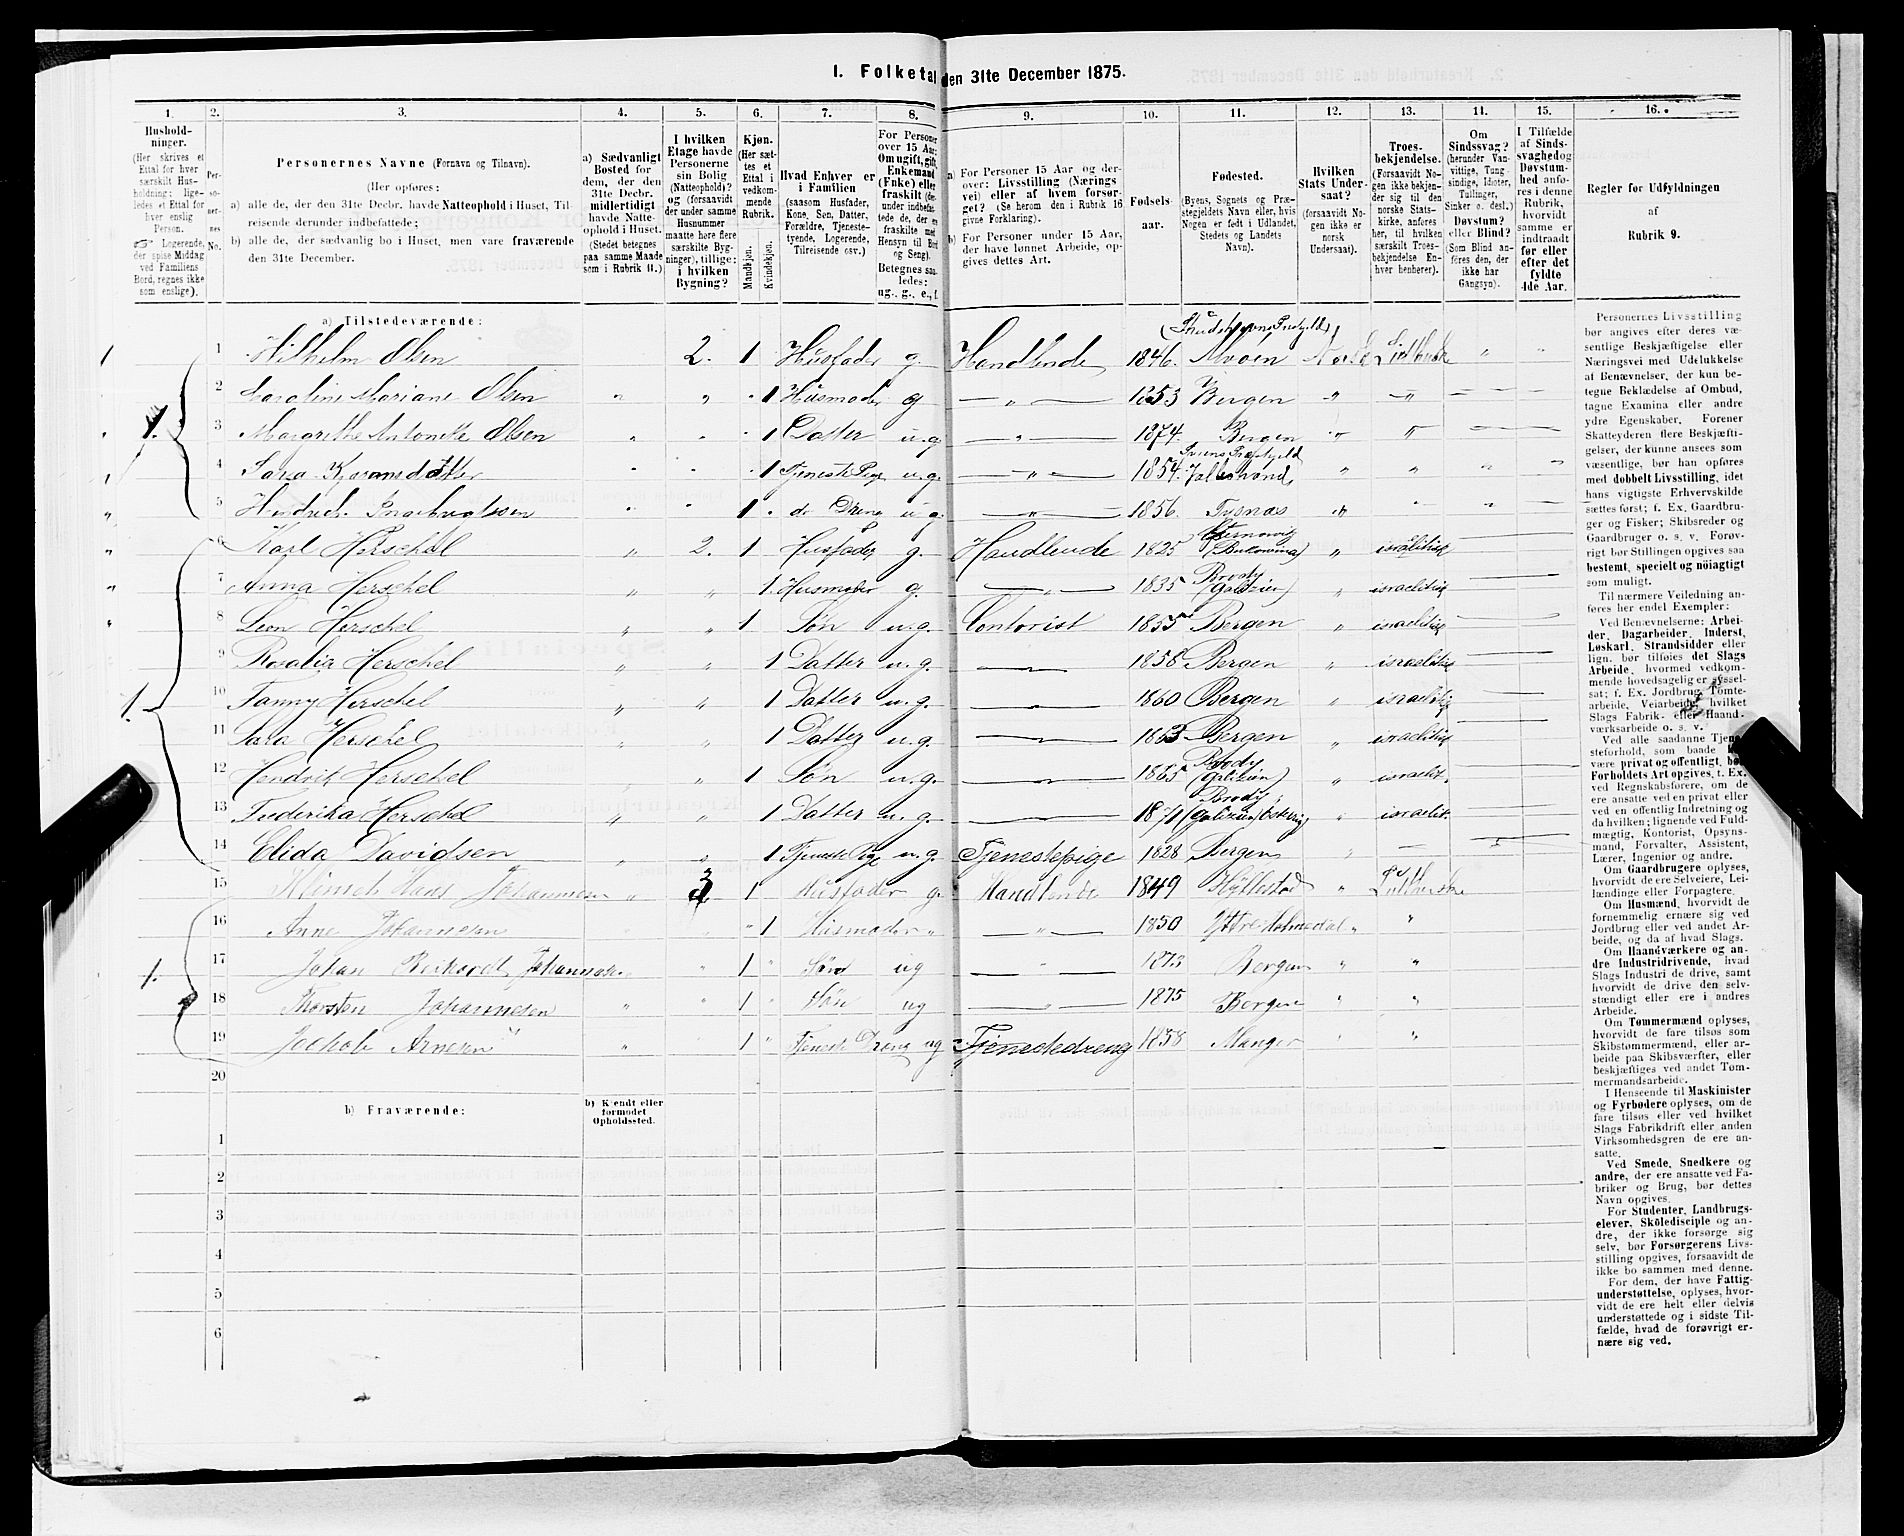 1. Folketal den 31te December 1875.
1. Husholdninger. (Her skrives et Ettal for hver særskilt Husholdning; ligeledes et Ettal for hver enslig Person. Logerende, der spise Middag ved Familiens Bord, regnes ikke som enslige).
2. Personernes No.
3. Personernes Navne (Fornavn og Tilnavn).
(Her opføres:
a) alle de, der den 31te Decbr. havde Natteophold i Huset, Tilreisende derunder indbefattede;
b) alle de, der sædvanlig bo i Huset, men vare fraværende den 31te December.
4. a) Sædvanligt Bosted for dem, der den 31te Decbr. midlertidigt havde Natteophold i Huset. (Stedet betegnes paa samme Maade som i Rubrik 11.)
5. I hvilken Etage havde Personerne sin Bolig (Natteophold)? og (forsaavidt der under samme Husnummer maatte høre flere særskilte Bygninger), tillige: i hvilken Bygning?
6. Kjøn. (Her sættes et Ettal i vedkommende Rubrik. Mandkjøn. Kvindekjøn.
7. Hvad Enhver er i Familien (saasom Husfader, Kone, Søn, Datter, Forældre, Tjenestetyende, Logerende, Tilreisende osv.)
8. For Personer over 15 Aar: Om ugift, gift, Enkemand (Enke) eller fraskilt
Betegnes saaledes: ug., g., e., f.
9. a) For Personer 15 Aar og derover: Livsstilling (Næringsvei) eller af hvem forsørget? (Se herom den i Rubrik 16 givne Forklaring).
b) For Personer under 15 Aar, der have lønnet Arbeide, opgives dettes Art.
10. Fødselsaar.
11. Fødested. (Byens, Sognets og Præstegjeldets Navn eller, hvis Nogen er født i Udlandet, Stedets og Landets Navn).
12. Hvilken Stats Undersaat? (forsaavidt Nogen ikke er norsk Undersaat).
13. Troesbekjendelse. (Forsaavidt Nogen ikke bekjender sig til den norske Statskirke, anføres her, til hvilken særskilt Troesbekjendelse Enhver henhører).
14. Om Sindssvag? (herunder Vanvittige, Tungsindige, Idioter, Tullinger, Sinker o. desl.) Døvstum? eller Blind? (Som Blind anføres den, der ikke har Gangsyn).
15. I Tilfælde af Sindssvaghed og Døvstumhed anføres i denne Rubrik, hvorvidt samme er indtraadt før eller efter det fyldte 4de Aar.
16. Regler for Udfyldningen af Rubrik 9.
a) Tilstedeværende:
1 Wilhelm Olsen 2. 1 Husfader g. Handlende 1846. Norsk Lutherske
1. 2 Karoline Mariane Olsen 1 Husmoder g 1853 Bergen
3 Margrethe Antonette Olsen 1 Datter u.g 1874. Bergen
4 Sara 1 Tjeneste Pige u.g. 1854.
5 Hendrich 1 do Dreng u.g 1856. Tysnæs
6 Karl Herschel 2. 1 Husfader g. Handlende 1825 Czernowig (Bukowina) israelitisk
7 Anna Herschel 1. Husmoder g. 1835 Brody (Galizien) israelitisk
8 Leon Herschel 1 Søn u.g. Contorist 1855 Bergen israelitisk
9 Rosalia Herschel 1 Datter u.g. 1858 Bergen israelitisk
1. 10 Fanny Herschel 1 Datter u.g. 1860 Bergen israelitisk
11 Sara Herschel 1 Datter u.g. 1863 Bergen israelitisk
12 Hendrik Herschel 1 Søn u.g. 1865 Brody (Galizien) israelit.
13 Frederika Herschel 1 Datter u.g. 1871 Brody (Galizien) israelit.
14 Elida Davidsen 1 Tjeneste Pige u.g. Tjenestepige 1828 Bergen
15 Hans Johannesen 3 1 Husfader g. Handlende 1849 Hyllestad Lutherske
16 Anne Johannesen 1 Husmoder 1850 Yttre Holmedal
1. 17 Johan Johannesen 1 Søn ug 1873 Bergen
18 Thorsten Johannesen 1 Søn ug 1875 Bergen
19 Jackob Arnesen 1 Tjeneste Dreng ug Tjenestedreng 1858 Manger
20
b) Fraværende:
b) Kjendt eller formodet Opholdssted.
1
2
3
4
5
6
Personernes Livsstilling
bør angives efter deres væ-
sentlige Beskjæftigelse eller
Næringsvei med Udelukkelse
af Benævnelser, der kun be-
tegne Beklædelse af Ombud,
tagne Examina eller andre
ydre Egenskaber. Forener
Skatteyderen flere Beskjæfti-
gelser, der kunne ansees som
væsentlige, bør han opføres
med dobbelt Livsstilling, idet
hans vigtigste Erhvervskilde
sættes først; f. Ex. Gaardbru-
ger og Fisker; Skibsreder og
Gaardbruger o. s. v. Forøv-
rigt bør Stillingen opgives saa
bestemt, specielt og nöiagtigt
som muligt.
Til nærmere Veiledning an-
føres her endel Exempler:
Ved Benævnelserne: Arbei-
der, Dagarbeider, Inderst,
Løskarl, Strandsidder eller
lign. bør tilføies det Slags
Arbeide, hvormed vedkom-
mende hovedsagelig er syssel-
sat; f. Ex. Jordbrug, Tömte-
arbeide, Veiarbeide, hvilket
Slags Fabrik- eller Haand-
værksarbeide o. s. v.
Ved alle saadanne Tjene-
steforhold, som baade kan
være privat og offentligt, bør
Forholdets Art opgives, t. Ex.
ved Regnskabsførere, om de
ere ansatte ved en privat eller
ved en offentlig Indretning og
da hvilken; lignende ved Fuld-
mægtig, Kontorist, Opsyns-
mand, Forvalter, Assistent,
Lærer, Ingeniør og andre.
Om Gaardbrugere oplyses,
hvorvidt de ere Selveiere, Lei-
lændinge eller Forpagtere.
Om Husmænd, hvorvidt de
fornemmelig ernære sig ved
Jordbrug eller ved andet Ar-
beide, og da af hvad Slags.
Om Haandværkere og an-
dre Industridrivende, hvad
Slags Industri de drive, samt
hvorvidt de drive den selv-
stændigt eller ere i andres
Arbeide.
Om Tømmermænd oplyses,
hvorvidt de fare tilsøs som
Skibstømmermænd, eller ar-
beide paa Skibsværfter, eller
beskjæftiges ved andet Tøm-
mermandsarbeide.
I Henseende til Maskinister
og Fyrbødere oplyses, om de
fare tilsøs eller ved hvilket
Slags Fabrikdrift eller anden
Virksomhedsgren de ere an-
satte.
Ved Smede, Snedkere og
andre, der ere ansatte ved Fa-
briker og Brug, bør dettes
Navn opgives.
For Studenter, Landbrugs-
elever, Skoledisciple og an-
dre, der ikke forsørge sig
selv, bør Forsørgerens Livs-
stilling opgives, forsaavidt de
ikke bo sammen med denne.
For dem, der have Fattig-
understøttelse, oplyses, hvor-
vidt de ere helt eller delvis
understøttede og i sidste Til-
fælde, hvad de forøvrigt er-
nære sig ved.